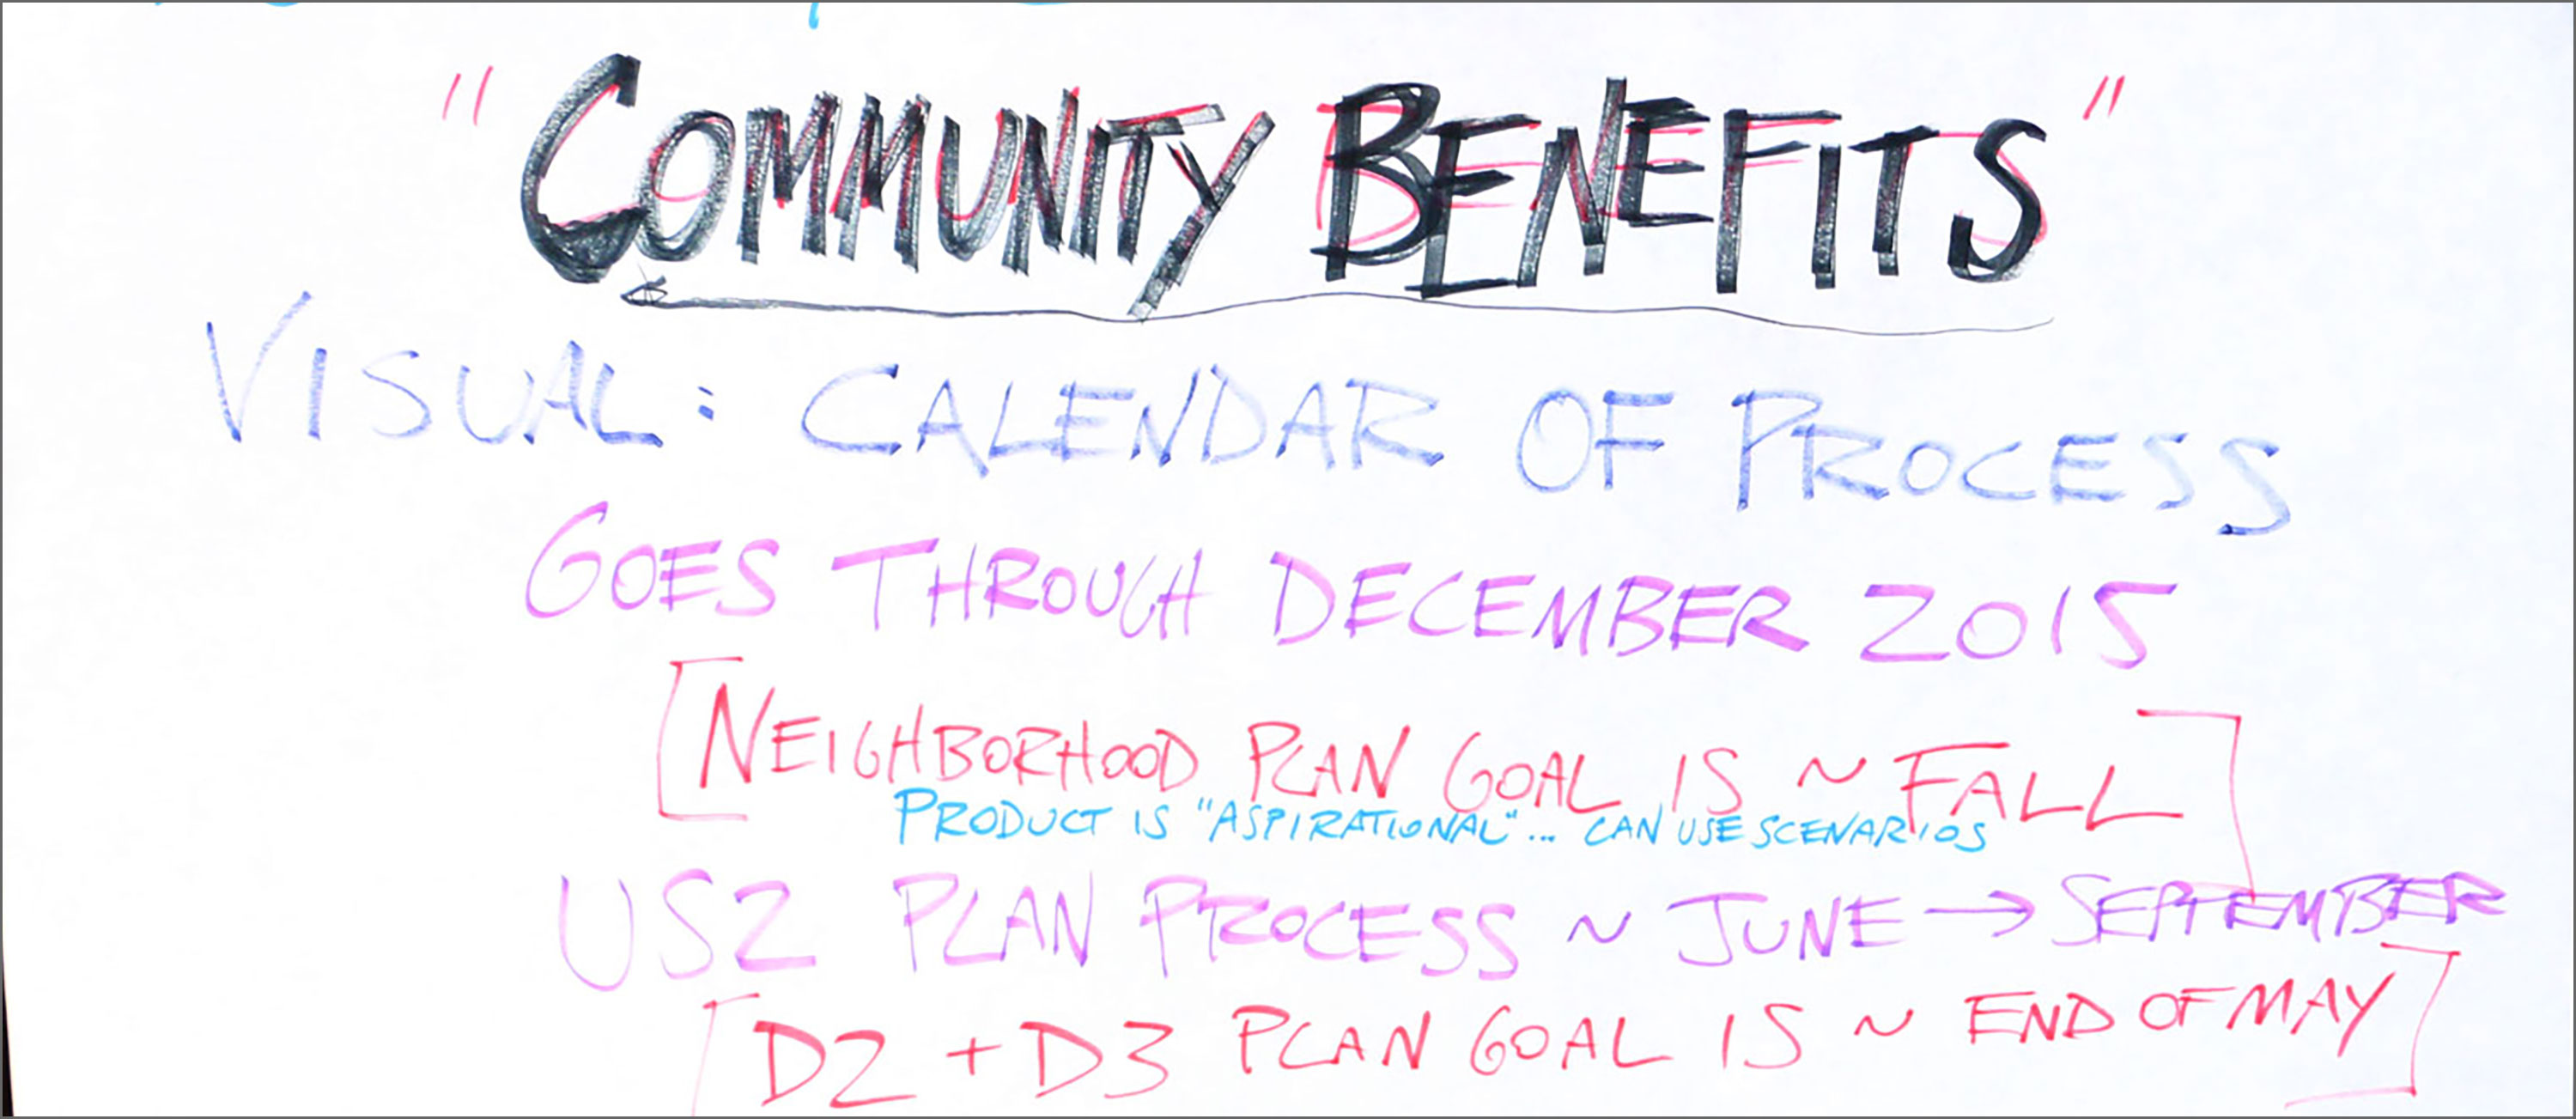 "COMMUNITY BENEFITS"
VISUAL: CALENDAR OF PROCESS
GOES THROUGH DECEMBER 2015
[NEIGHBORHOOD PLAN GOAL IS ~ FALL]
PRODUCT IS "ASPIRATIONAL"... CAN USE SCENARIOS
US2 PLAN PROCESS ~ JUNE → SEPTEMBER
[D2 + D3 PLAN GOAL IS ~ END OF MAY]